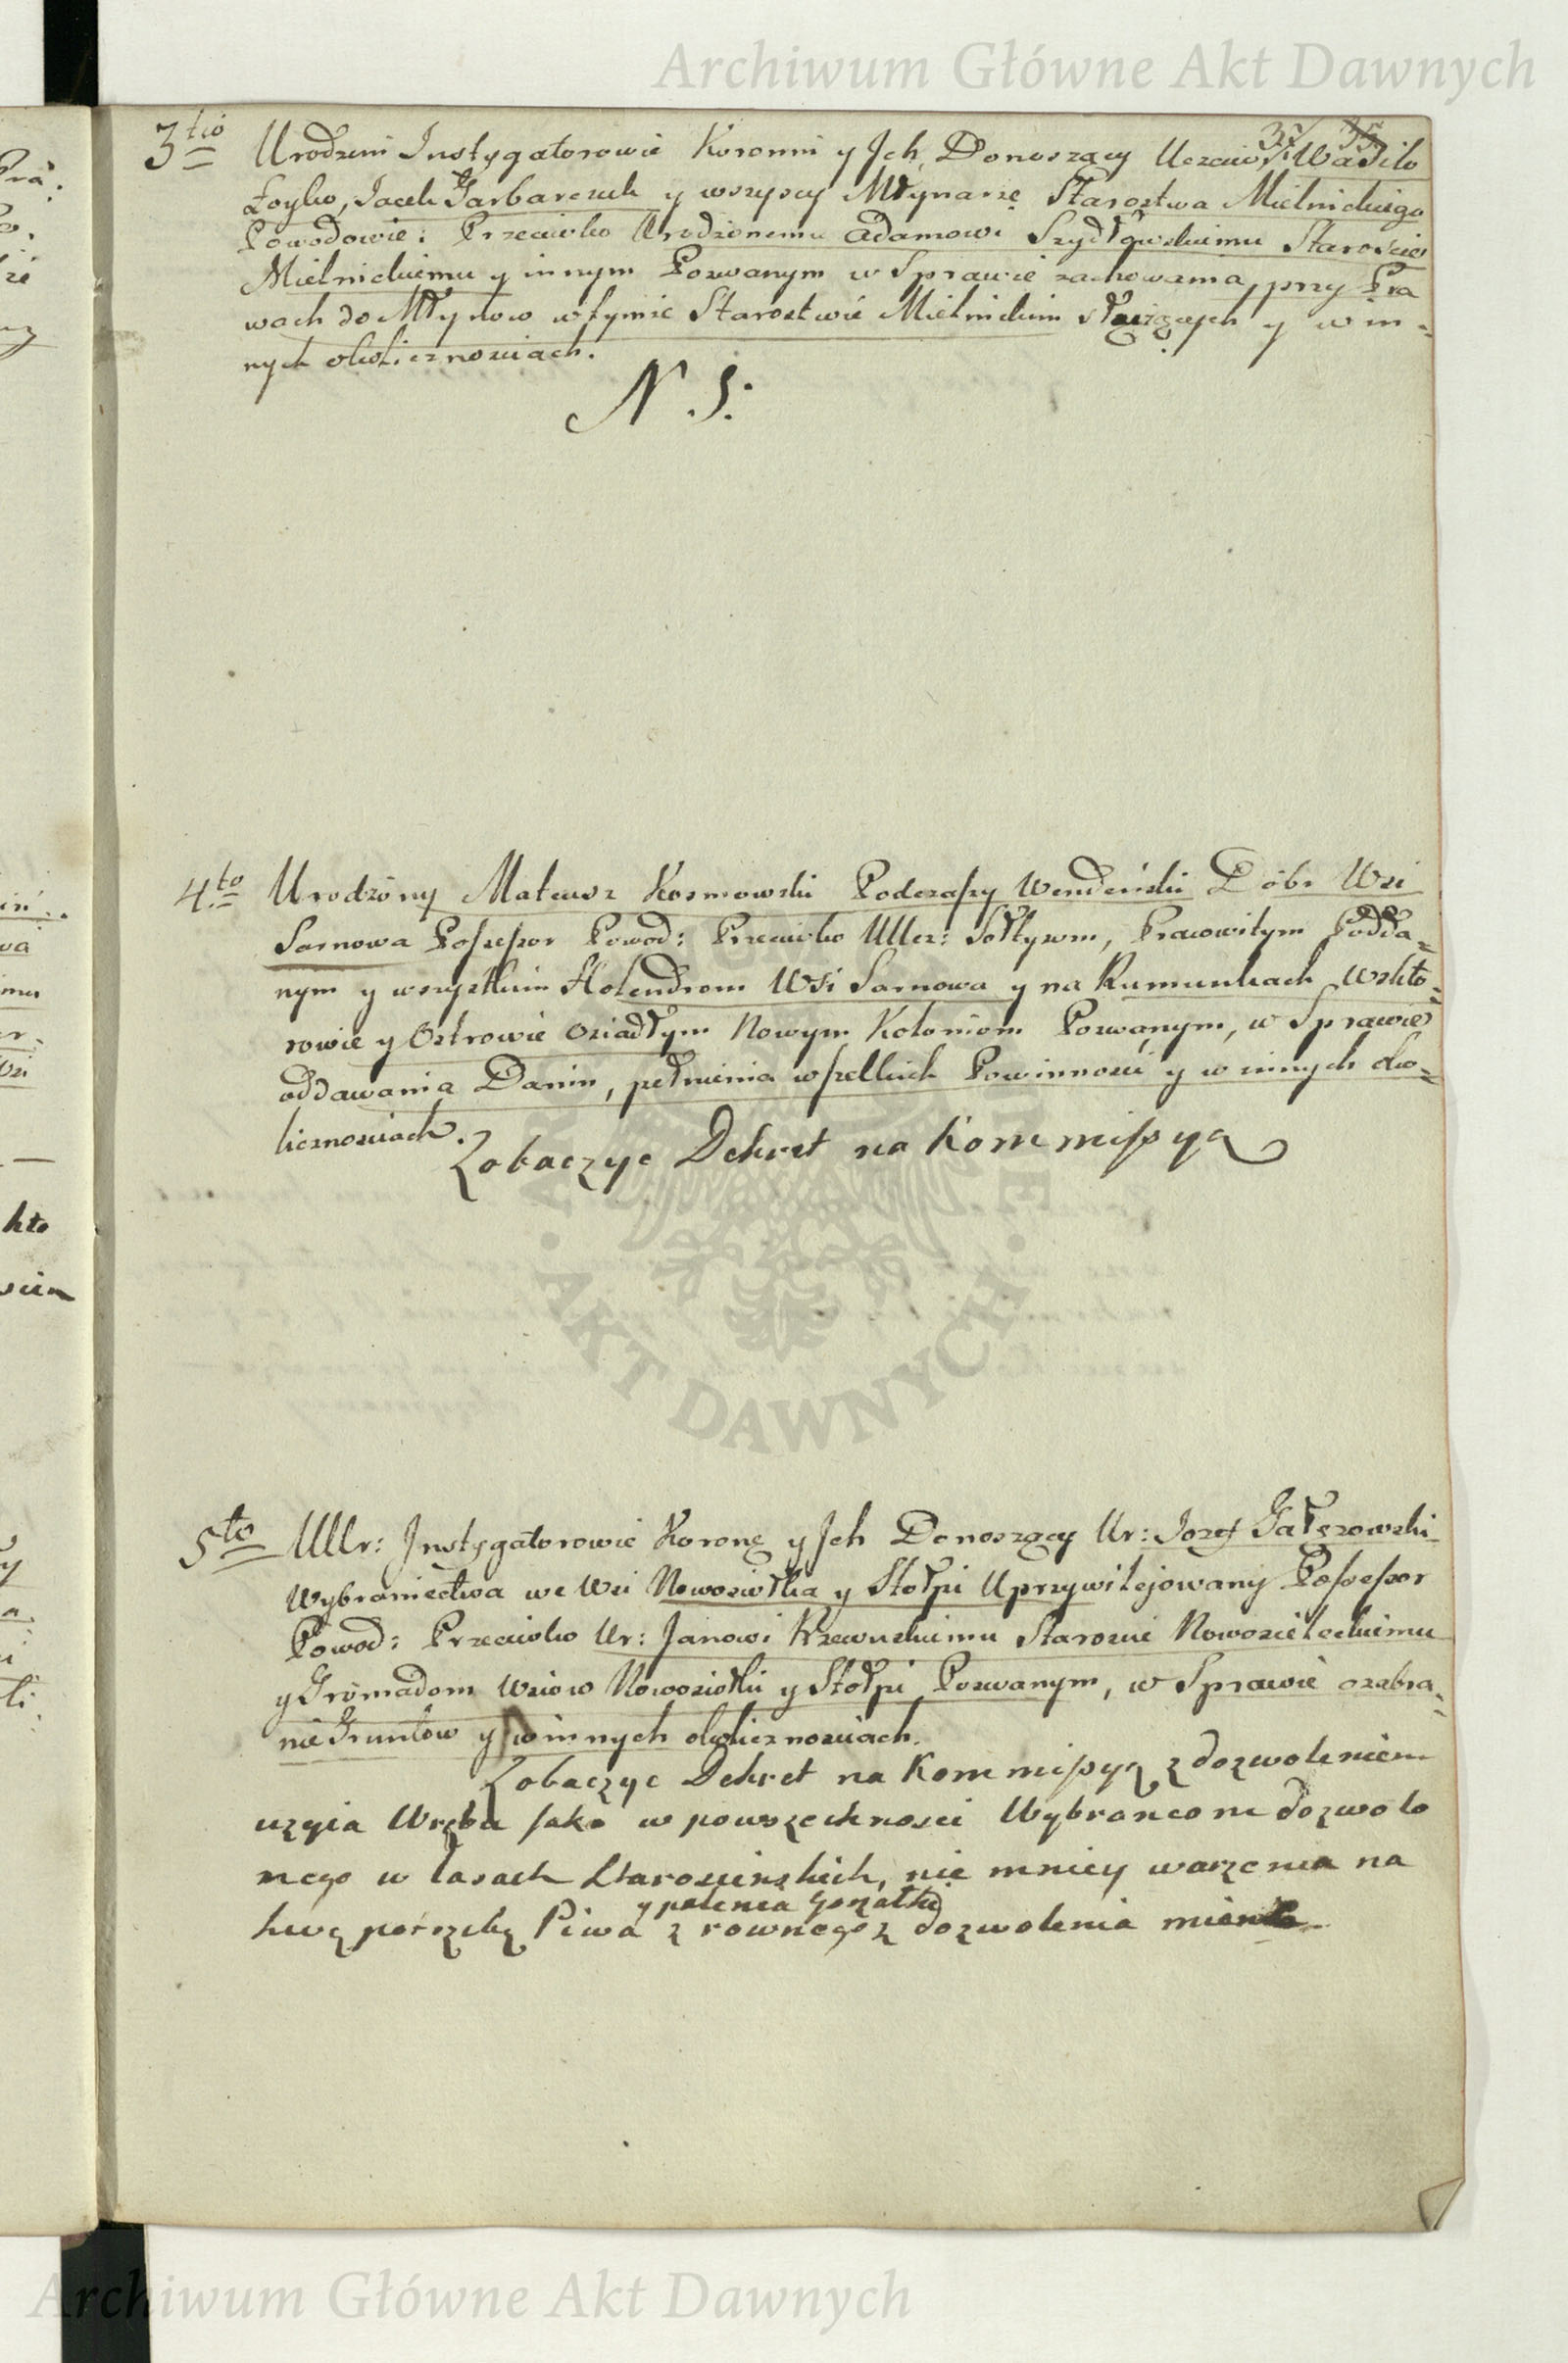 Archiwum Główne Akt Dawnych
37 35
3tio Urodzeni Instygatorowie Koronni y Jch Donoszący Uczciwi Wasilo
Łoyko, Jacek Garbarczuk y wszyscy Młynarzę Starostwa Mielnickiego
Powodowie: Przeciwko Urodzonemu Adamowi Szydłowskiemu Staroscie
Mielnickiemu y innym Pozwanym w Sprawie zachowania przy Pra
wach do Młynow w tymże Starostwie Mielnickim służących y w in=
nych okolicznosciach.
N. S:
4to Urodzony Mateusz Kosmowski Podczaszy Wendeński Dobr Wsi
Sarnowa Possessor Powod: Przeciwko UUcz: Sołtysom, Pracowitym Podda=
nym y wszystkim Holendrom Wsi Sarnowa y na Rumunkach Wikto=
rowie y Ostrowie Osiadłym Nowym Koloniom Pozwanym, w Sprawie
oddawania Danin, pełnienia wszelkich Powinności y w innych oko=
licznosciach.
Zobaczyc Dekret na Kommissyą
5to UUr: Instygatorowie Koronę y Jch Donoszący Ur: Jozef Gałęzowski
Wybraniectwa we Wsi Nowosiołka y Stołpi Uprzywilejowany Possessor
Powod: Przeciwko Ur: Janowi Krzewuskiemu Staroscie Nowosieleckiemu
y Gromadom Wsiow Nowosiołki y Stołpi Pozwanym, w Sprawie ozabra=
nie Gruntow y w innych okolicznosciach.
Zobaczyc Dekret na Kommissyą z dozwoleniem
uzycia Wrębu jako w powszechnosci Wybrancom dozwolo
nego w lasach Staroscinskich, nie mniey warzenia na
y palenia gorzałki
swą potrzebę Piwa z rownegoz dozwolenia
AKT DAWNYCH
Archiwum Główne Akt Dawnych